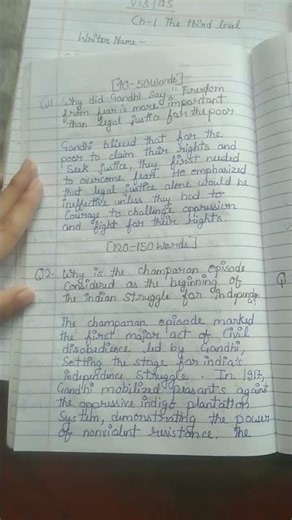 Vistas
Ch-1 The third level
Writer Name -
[40-50 Words]
Q1 Why did Gandhi say "Freedom
from fear is more important
than legal justice for the poor
Gandhi blieved that for the
poor to claim their rights and
Seek justice, they first needed
to overcome fear. He emphasized
that legal justice alone would be
ineffective unless they had to
Courage to challenge oppression
and fight for their rights.
[120-150 Words]
Q2- Why is the champaran episode
Considered as the beginning of
the Indian Struggle for Independen
The champaran episode marked
the first major act of Civil
disobedience led by Gandhi,
Setting the stage for india's
independence Struggle. In 1917,
Gandhi mobilized peasants against
the oppressive indigo plantation
System, demonstrating the power
of nonviolent resistance. The
Q